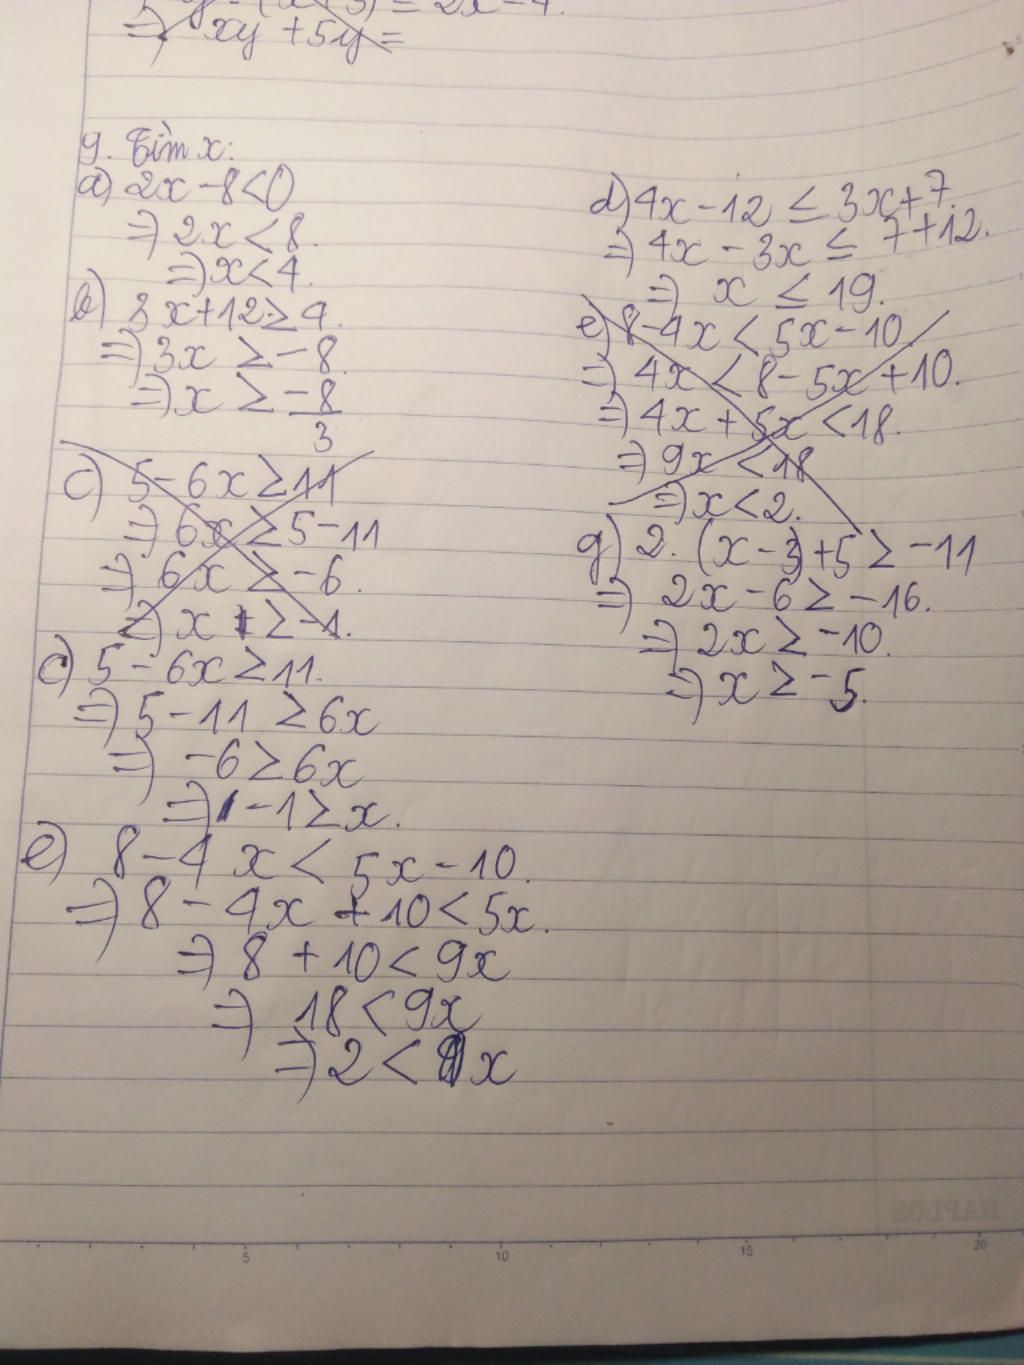 ⇒ xy + 5y =
9. Tìm x:
a) 2x - 8 < 0
⇒ 2x < 8.
⇒ x < 4.
b) 3x + 12 ≥ 4.
⇒ 3x ≥ -8.
⇒ x ≥ -8/3
c) 5 - 6x ≥ 11
⇒ 6x ≥ 5 - 11
⇒ 6x ≥ -6.
⇒ x ≥ -1.
c) 5 - 6x ≥ 11.
⇒ 5 - 11 ≥ 6x
⇒ -6 ≥ 6x
⇒ -1 ≥ x.
e) 8 - 4x < 5x - 10.
⇒ 8 - 4x + 10 < 5x.
⇒ 8 + 10 < 9x
⇒ 18 < 9x
⇒ 2 < x
d) 4x - 12 ≤ 3x + 7.
⇒ 4x - 3x ≤ 7 + 12.
⇒ x ≤ 19.
e) 8 - 4x < 5x - 10.
⇒ 4x < 8 - 5x + 10.
⇒ 4x + 5x < 18.
⇒ 9x < 18
⇒ x < 2.
g) 2. (x - 3) + 5 ≥ -11
⇒ 2x - 6 ≥ -16.
⇒ 2x ≥ -10.
⇒ x ≥ -5.
HAPLUS
5 10 15 20